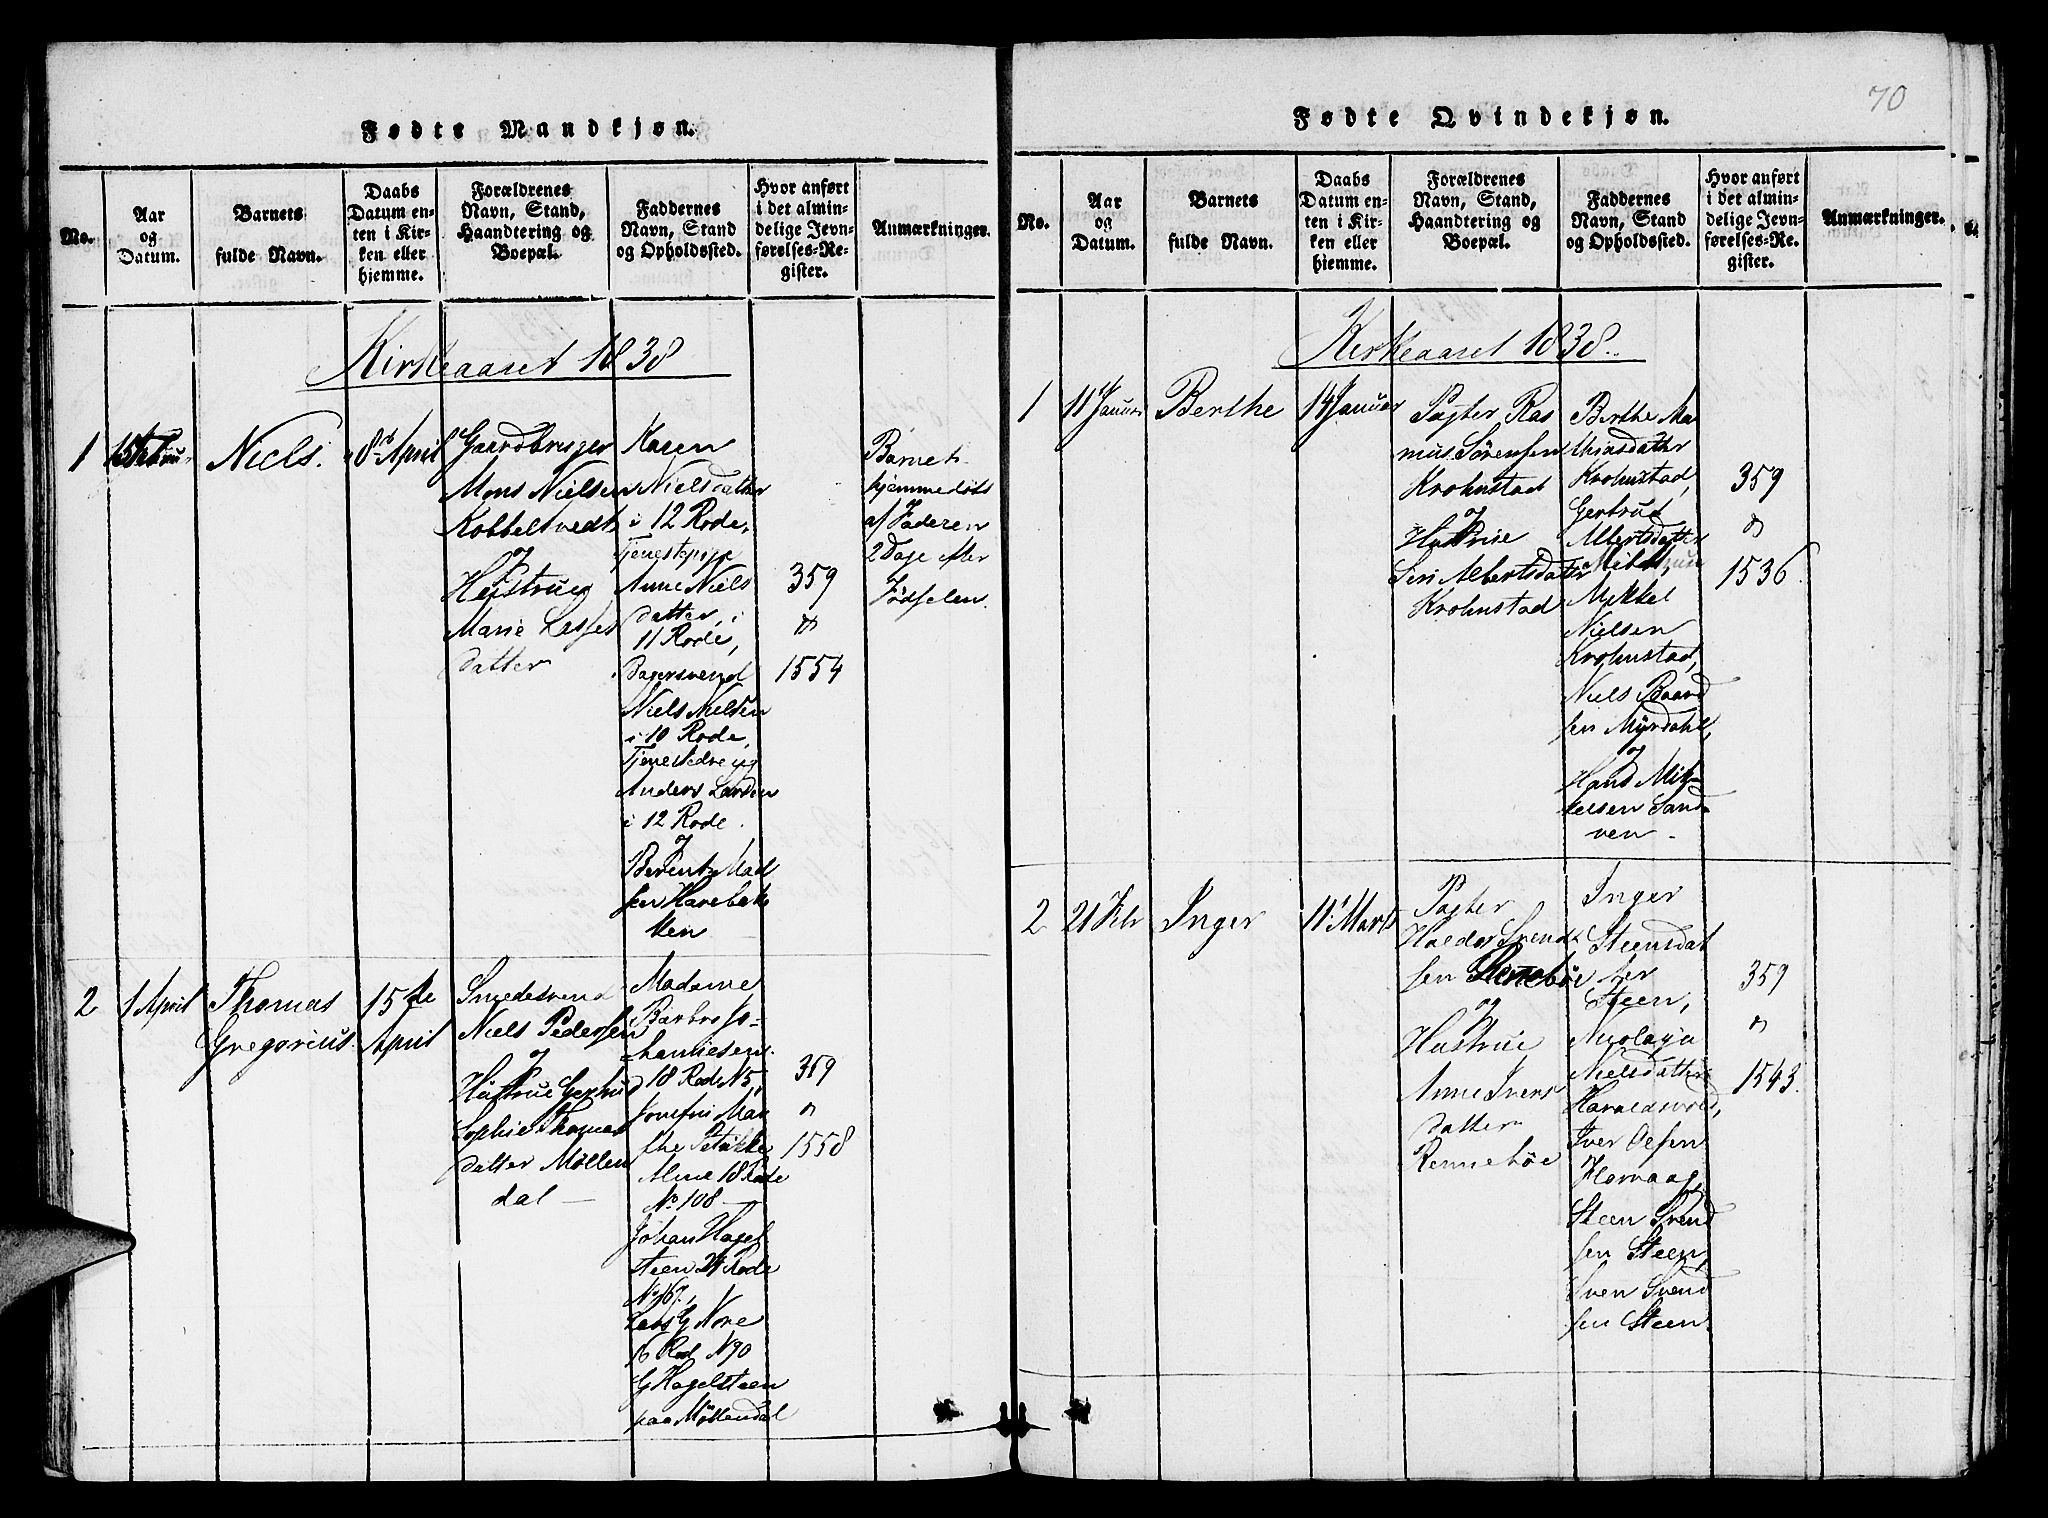 Fødte Mandkjøn.
No.
Aar
og
Datum.
Barnets
fulde Navn.
Daabs
Datum en-
ten i Kir-
ken eller
hjemme.
Forældrenes
Navn, Stand,
Haandtering og
Boepæl.
Faddernes
Navn, Stand
og Opholdssted.
Hvor anført
i det almin-
delige Jevn-
førelses-Re-
gister.
Anmærkninger.
Kirkeaaret 1838
1
Niels.
8de April
Gaardbruger
Mons Nielsen
Kobbeltvedt
og
Hustrue
Marie Lasses
datter
Karen
Nielsdatter
i 12 Rode,
Tjenestepige
Anne Niels
datter, i
11 Rode,
Bagersvend
Niels Nielsen
i 10 Rode,
Tjenestedreng
Anders Larsen
i 12 Rode.
og
Berent Mad
sen Harebak
ken
359
&
1554
Barnet
hjemmedøbt
af Faderen
2 Dage efter
Fødselen.
2
1 April
Thomas
Gregorius
15de
April
Smedesvend
Niels Pedersen
og
Hustrue Gertrud
Sophie Thomas
datter Møllen
dal
Madame
Barbro Jo-
hannesen
18 Rode N 5,
Josefni Mar
the
Alme 18 Rode
No 108
Johan Hagel
steen 24 Rode
No 167,
Lars G Nore
16 Rod N 90
G Hagelsteen
paa Møllendal
359
&
1558
70
Fødte Qvindekjøn.
No.
Aar
og
Datum.
Barnets
fulde Navn.
Daabs
Datum en-
ten i Kir-
ken eller
hjemme.
Forældrenes
Navn, Stand,
Haandtering og
Boepæl.
Faddernes
Navn, Stand
og Opholdssted.
Hvor anført
i det almin-
delige Jevn-
førelses-Re-
gister.
Anmærkninger.
Kirkeaaret 1838.
1
11 Januar
Berthe
14 Januar
Pagter Ras
mus Sørensen
Krohnstad
og
Hustrue
Siri Albertsdatter
Krohnstad
Berthe Ma
thiasdatter
Krohnstad,
Gertrud
Albertsdatter
Mikkel
Nielsen
Krohnstad,
Niels Baard
sen Myrdahl,
og
Hans Mik-
kelsen Sand
ven
359
&
1536.
2
21 Febr
Inger
11 Marts
Pagter
Haldor Svend
sen Rennebøe
og
Hustrue
Anne Ivers
datter
Rennebøe
Inger
Steensdat
ter
Steen,
Nicolaja
Nielsdatter
Iver Olsen
Steen Svend
sen Steen,
Sven Svend
sen Steen.
359
&
1543.